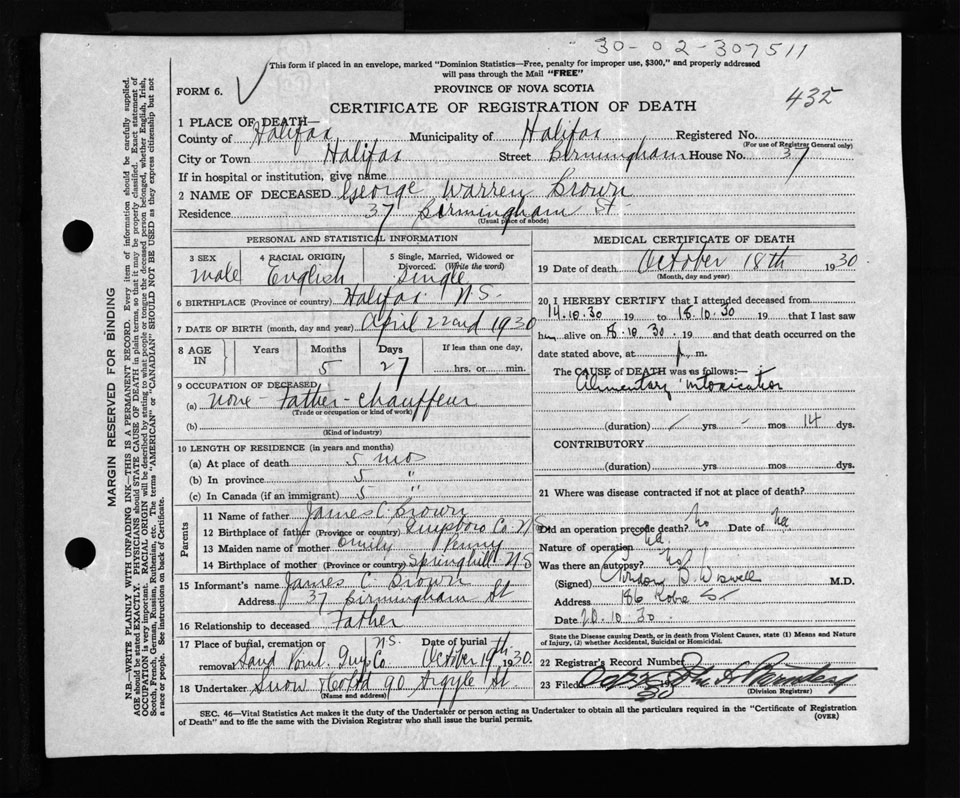 30-02-307511
This form if placed in an envelope, marked "Dominion Statistics—Free, penalty for improper use, $300," and properly addressed
will pass through the Mail "FREE"
FORM 6.
PROVINCE OF NOVA SCOTIA
CERTIFICATE OF REGISTRATION OF DEATH
432
1 PLACE OF DEATH—
County of Halifax Municipality of Halifax Registered No.
(For use of Registrar General only)
City or Town Halifax Street Birmingham House No. 37
If in hospital or institution, give name
2 NAME OF DECEASED George Warren Brown
Residence 37 Birmingham St
(Usual place of abode)
PERSONAL AND STATISTICAL INFORMATION
3 SEX 4 RACIAL ORIGIN 5 Single, Married, Widowed or
Divorced. (Write the word)
male English Single
6 BIRTHPLACE (Province or country) Halifax N.S.
7 DATE OF BIRTH (month, day and year) April 22nd 1930
8 AGE IN Years Months Days If less than one day,
5 27 hrs. or min.
9 OCCUPATION OF DECEASED
(a) none - Father - Chauffeur
(Trade or occupation or kind of work)
(b)
(Kind of industry)
10 LENGTH OF RESIDENCE (in years and months)
(a) At place of death 5 mos
(b) In province 5 "
(c) In Canada (if an immigrant) 5 "
Parents
11 Name of father James C. Brown
12 Birthplace of father (Province or country) Guysboro Co. NS
13 Maiden name of mother Emily Penny
14 Birthplace of mother (Province or country) Springhill NS
15 Informant's name James C. Brown
Address 37 Birmingham St
16 Relationship to deceased Father
17 Place of burial, cremation or N.S. Date of burial
removal Sand Point. Guys Co. October 19th 1930
18 Undertaker Snow & Co Ltd 90 Argyle St.
(Name and address)
MEDICAL CERTIFICATE OF DEATH
19 Date of death October 18th 1930
(Month, day and year)
20 I HEREBY CERTIFY that I attended deceased from
14.10.30 19 to 18.10.30 19 that I last saw
him alive on 18.10.30. 19 and that death occurred on the
date stated above, at p. m.
The CAUSE OF DEATH was as follows:—
Alimentary intoxication
(duration) / yrs. - mos 14 dys.
CONTRIBUTORY
(duration) yrs. mos. dys.
21 Where was disease contracted if not at place of death?
Did an operation precede death? No Date of na
Nature of operation na.
Was there an autopsy? no
(Signed) D. Wiswell M.D.
Address 186 Robie St
Date 20.10.30.
State the Disease causing Death, or in death from Violent Causes, state (1) Means and Nature
of Injury, (2) whether Accidental, Suicidal or Homicidal.
22 Registrar's Record Number
23 Filed 19
30
(Division Registrar)
SEC. 46—Vital Statistics Act makes it the duty of the Undertaker or person acting as Undertaker to obtain all the particulars required in the "Certificate of Registration
of Death" and to file the same with the Division Registrar who shall issue the burial permit.
(OVER)
MARGIN RESERVED FOR BINDING
N.B.—WRITE PLAINLY WITH UNFADING INK—THIS IS A PERMANENT RECORD. Every item of information should be carefully supplied.
AGE should be stated EXACTLY. PHYSICIANS should STATE CAUSE OF DEATH in plain terms, so that it may be properly classified. Exact statement of
OCCUPATION is very important. RACIAL ORIGIN will be described by stating to what people or tongue the deceased person belonged, whether English, Irish,
Scotch, French, German, Russian, Ruthenian, etc. The terms "AMERICAN" or "CANADIAN" SHOULD NOT BE USED as they express citizenship but not
a race or people. See instructions on back of Certificate.